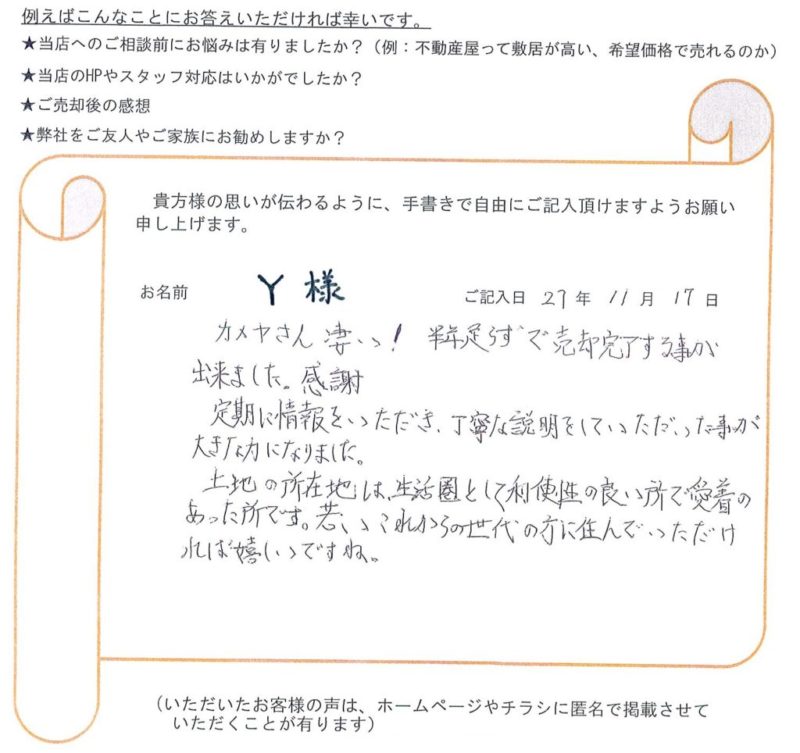 例えばこんなことにお答えいただければ幸いです。
★当店へのご相談前にお悩みは有りましたか？（例：不動産屋って敷居が高い、希望価格で売れるのか）
★当店のHPやスタッフ対応はいかがでしたか？
★ご売却後の感想
★弊社をご友人やご家族にお勧めしますか？
貴方様の思いが伝わるように、手書きで自由にご記入頂けますようお願い
申し上げます。
お名前 Y 様 ご記入日 27 年 11 月 17 日
カメヤさん 凄いっ！ 半年足らずで売却完了する事が
出来ました。感謝
定期に情報をいただき、丁寧な説明をしていただいた事が
大きな力になりました。
土地の所在地は、生活圏として利便性の良い所で愛着の
あった所です。若い、これからの世代の方に住んでいただけ
れば嬉しいですね。
（いただいたお客様の声は、ホームページやチラシに匿名で掲載させて
いただくことが有ります）